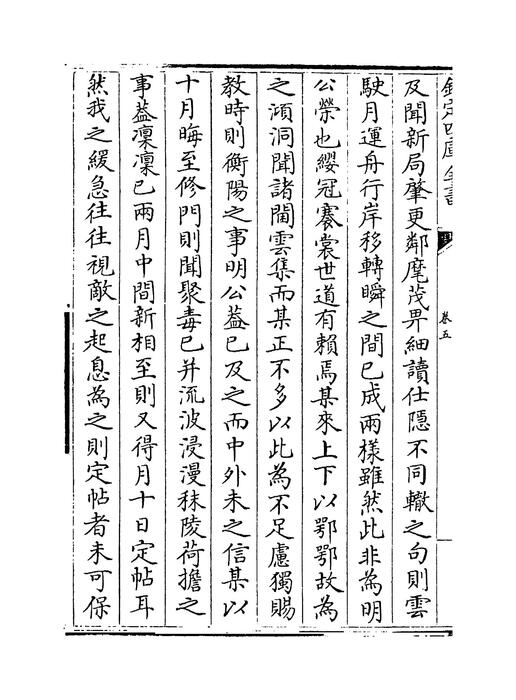 欽定四庫全書
卷五
及聞新局肇更鄰麾茂畀細讀仕隱不同轍之句則雲
駛月運舟行岸移轉瞬之間已成兩樣雖然此非為明
公榮也纓冠褰裳世道有賴焉某來上下以鄂鄂故為
之澒洞聞諸閫雲集而某正不多以此為不足慮獨賜
教時則衡陽之事明公葢已及之而中外未之信某以
十月晦至修門則聞聚毒已并流波浸漫秣陵荷擔之
事葢凜凜已兩月中間新相至則又得月十日定帖耳
然我之緩急往往視敵之起息為之則定帖者未可保